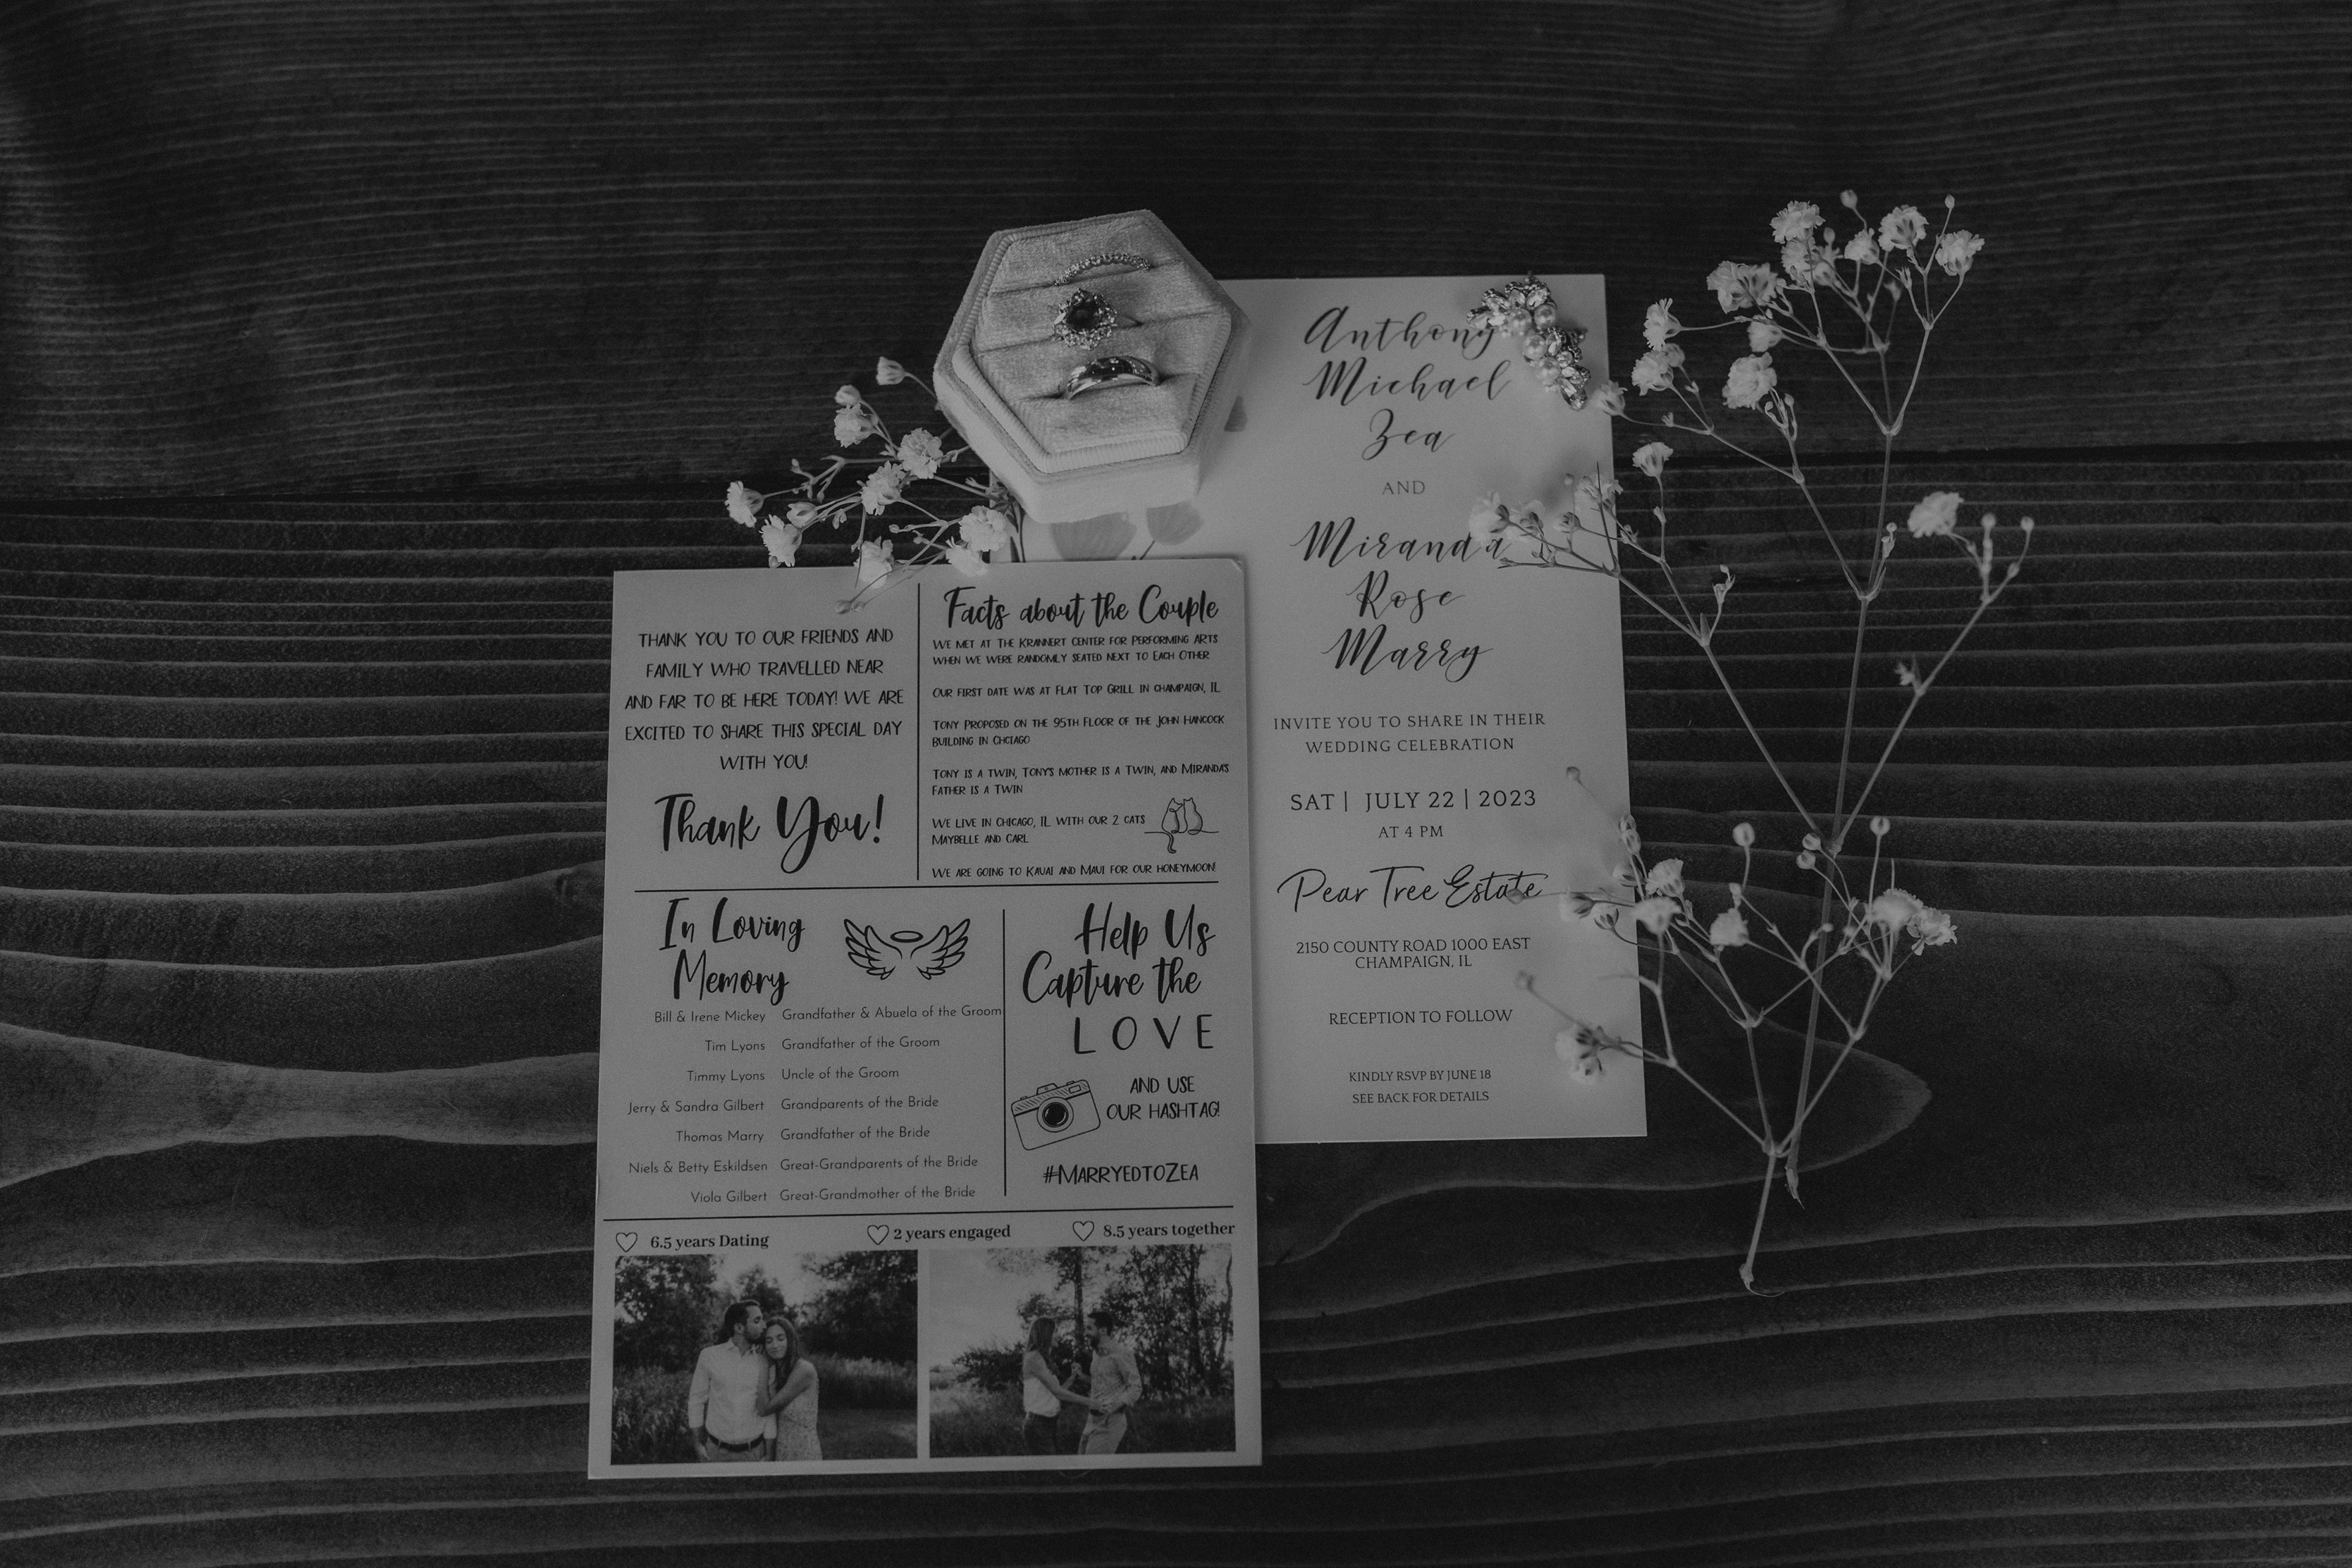 THANK YOU TO OUR FRIENDS AND
FAMILY WHO TRAVELLED NEAR
AND FAR TO BE HERE TODAY! WE ARE
EXCITED TO SHARE THIS SPECIAL DAY
WITH YOU!
Thank You!
Facts about the Couple
WE MET AT THE KRANNERT CENTER FOR PERFORMING ARTS
WHEN WE WERE RANDOMLY SEATED NEXT TO EACH OTHER
OUR FIRST DATE WAS AT FLAT TOP GRILL IN CHAMPAIGN, IL
TONY PROPOSED ON THE 95TH FLOOR OF THE JOHN HANCOCK
BUILDING IN CHCIAGO
TONY IS A TWIN, TONY'S MOTHER IS A TWIN, AND MIRANDA'S
FATHER IS A TWIN
WE LIVE IN CHICAGO, IL WITH OUR 2 CATS
MAYBELLE AND CARL
WE ARE GOING TO KAUAI AND MAUI FOR OUR HONEYMOON!
In Loving
Memory
Bill & Irene Mickey Grandfather & Abuela of the Groom
Tim Lyons Grandfather of the Groom
Timmy Lyons Uncle of the Groom
Jerry & Sandra Gilbert Grandparents of the Bride
Thomas Marry Grandfather of the Bride
Niels & Betty Eskildsen Great-Grandparents of the Bride
Viola Gilbert Great-Grandmother of the Bride
Help Us
Capture the
LOVE
AND USE
OUR HASHTAG!
#MARRYEDTOZEA
6.5 years Dating
2 years engaged
8.5 years together
Anthony
Michael
Zea
AND
Miranda
Rose
Marry
INVITE YOU TO SHARE IN THEIR
WEDDING CELEBRATION
SAT | JULY 22 | 2023
AT 4 PM
Pear Tree Estate
2150 COUNTY ROAD 1000 EAST
CHAMPAIGN, IL
RECEPTION TO FOLLOW
KINDLY RSVP BY JUNE 18
SEE BACK FOR DETAILS